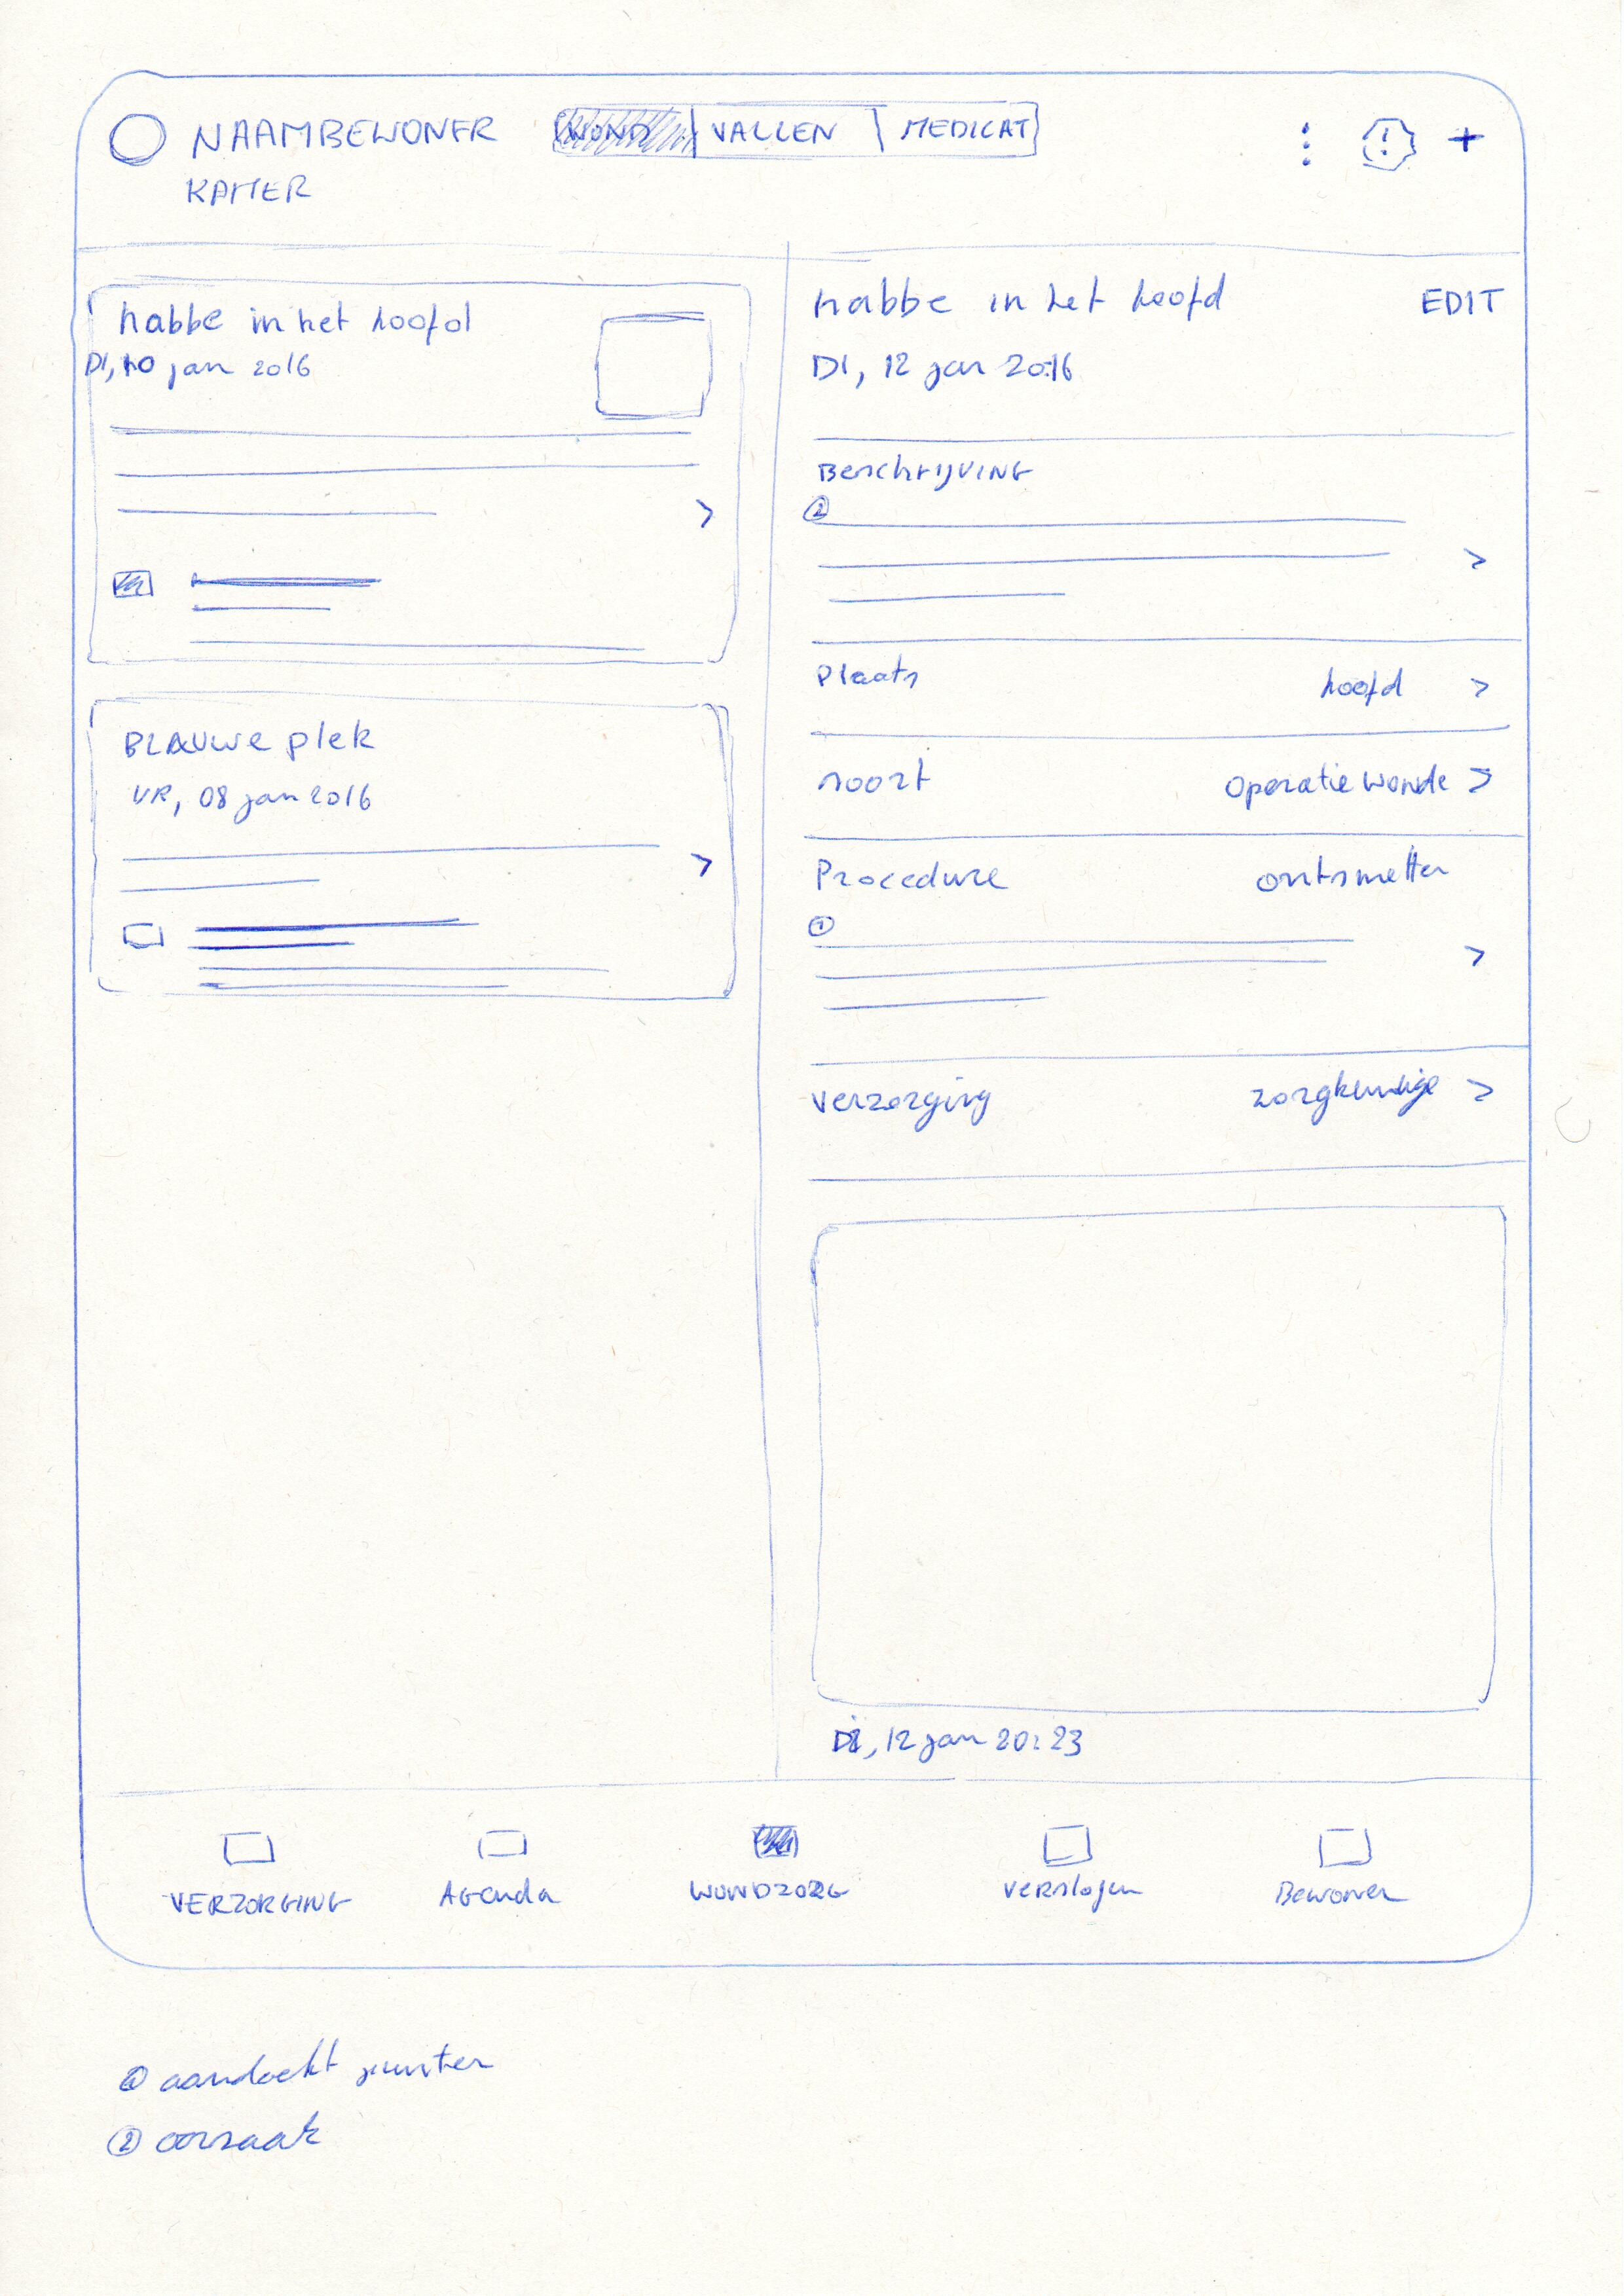 NAAMBEWONER
WOND VALLEN MEDICAT
KAMER
in het hoofd
DI, 10 jan 2016
BLAUWE plek
VR, 08 jan 2016
in het hoofd EDIT
DI, 12 jan 2016
BeschrijVING
2
Plaats hoofd >
soort Operatie wonde >
Procedure ontsmetten
1
verzorging zorgkundige >
DI, 12 jan 20:23
VERZORGING AGenda WONDZORG verslagen Bewoner
1 aandacht punten
2 oorzaak